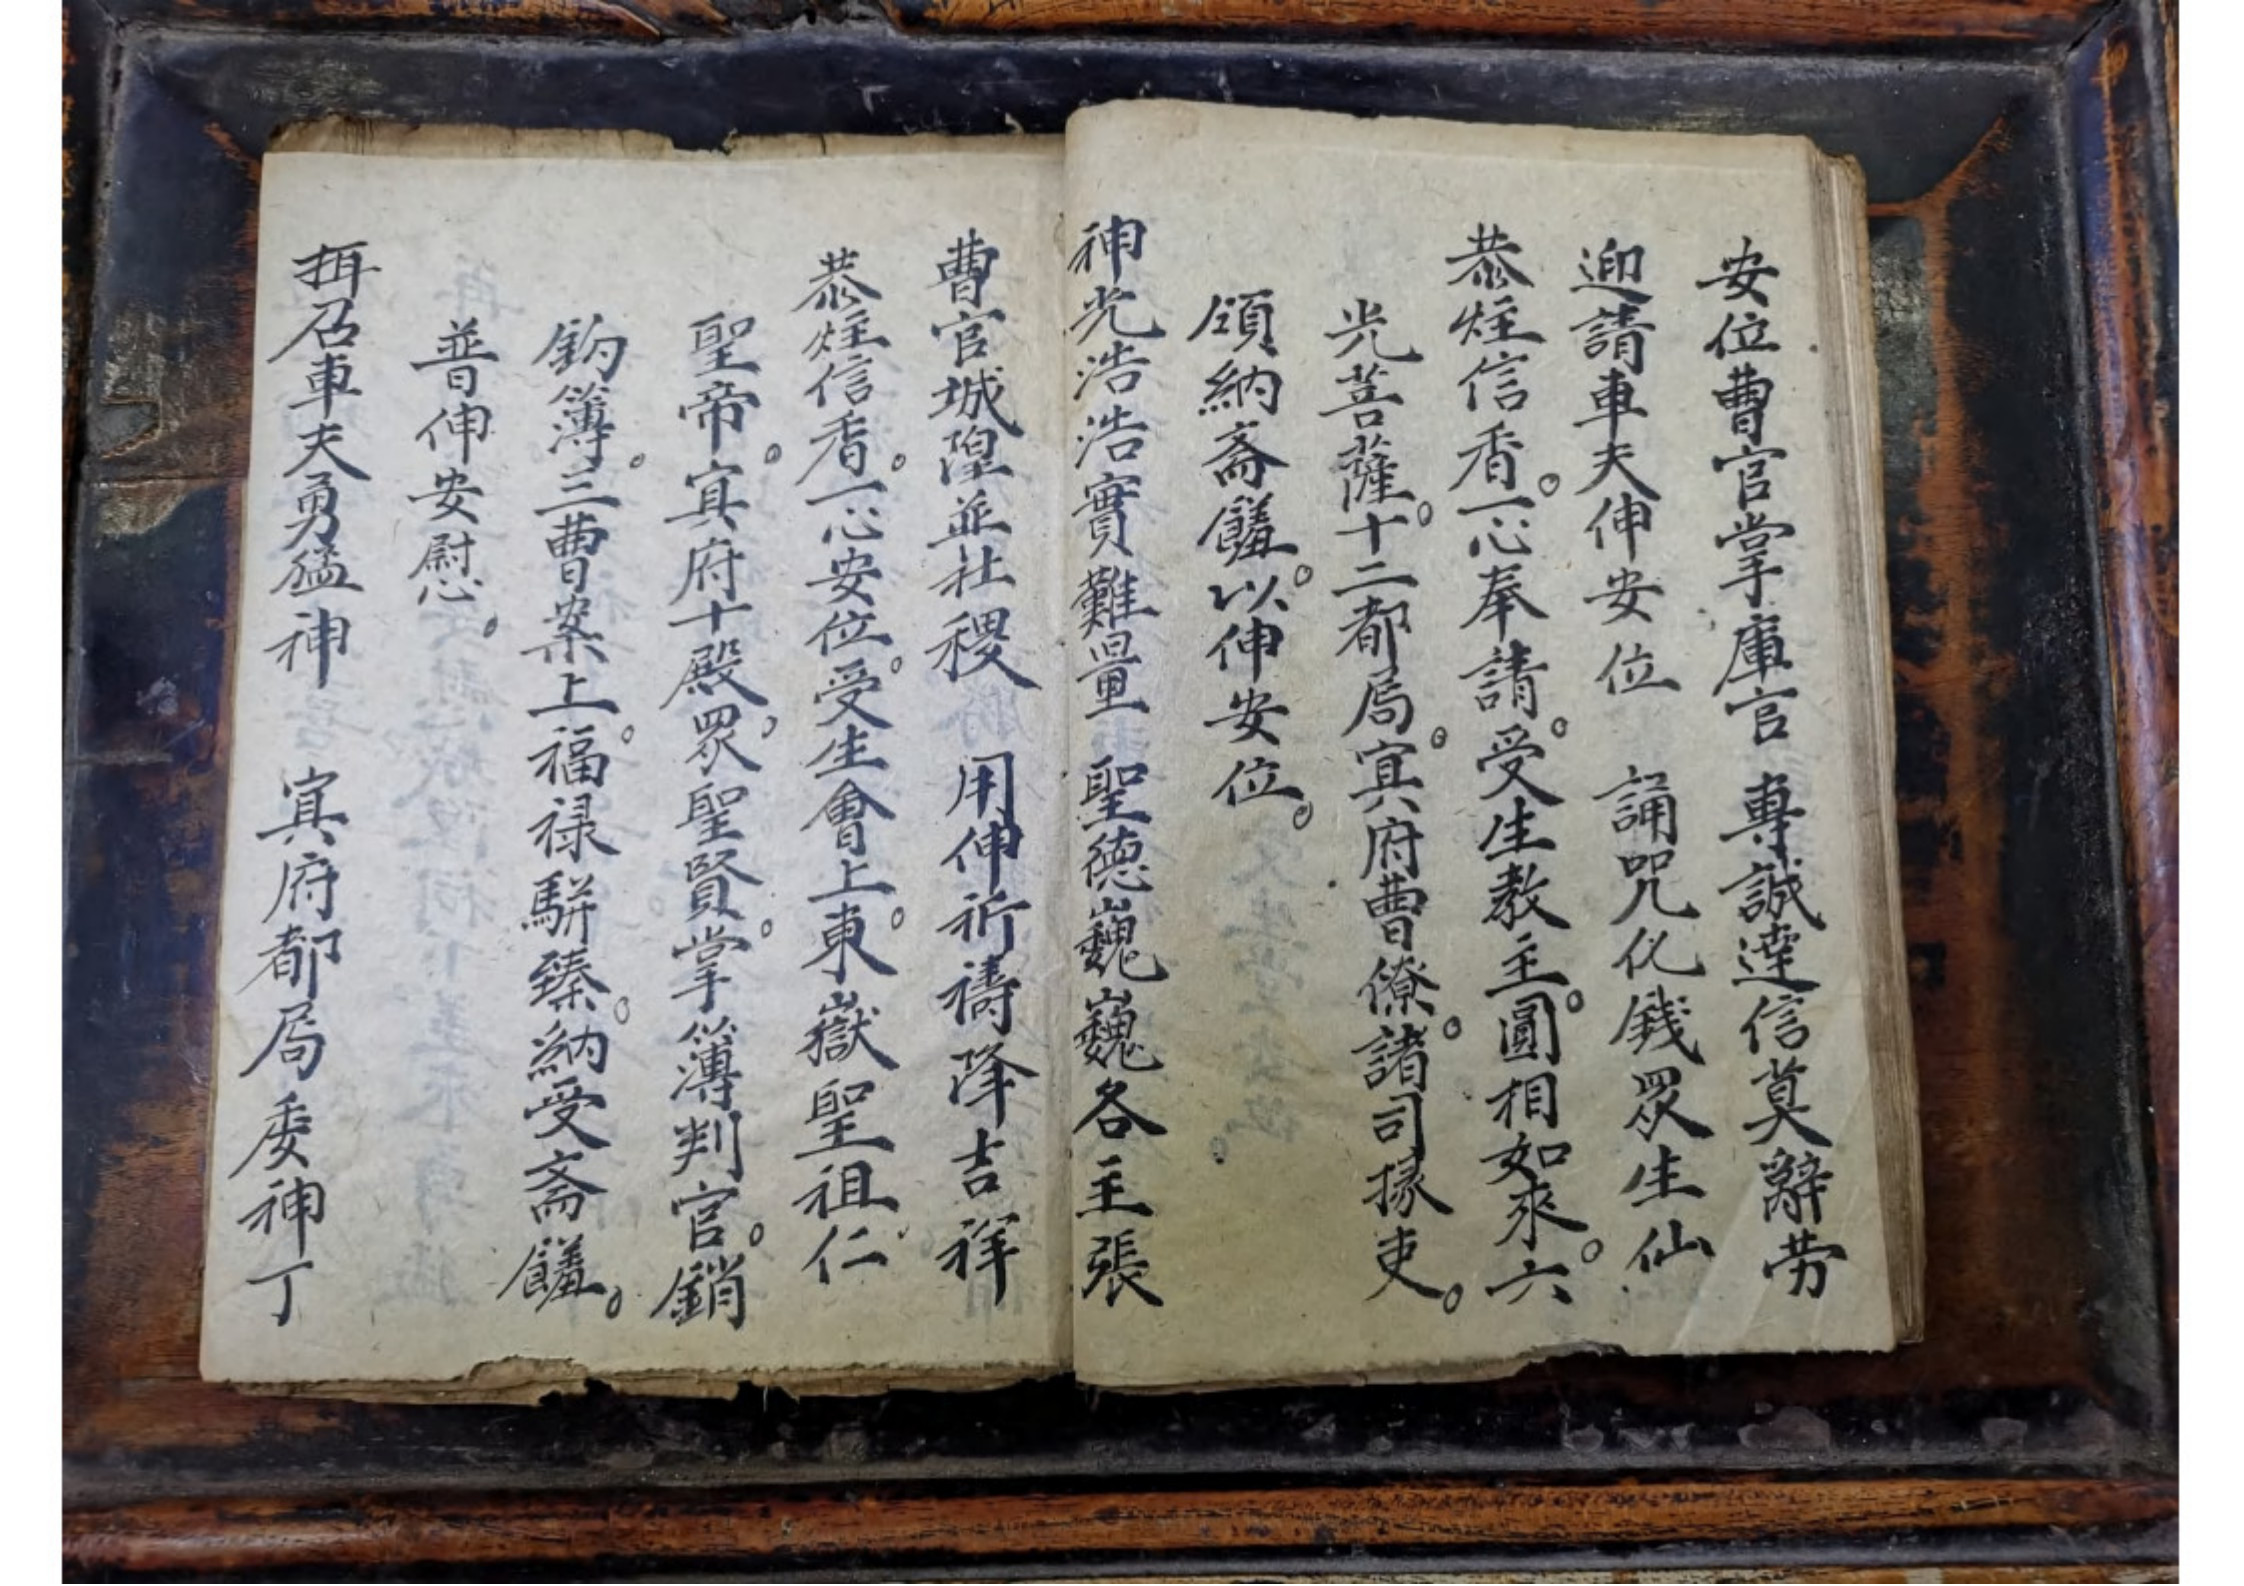 安位曹官掌庫官 專誠達信莫辭劳
迎請車夫伸安位 誦咒化錢眾生仙
恭炷信香。一心奉請。受生教主。圓相如來。六
光菩薩。十二都局。寘府曹僚。諸司掾吏。
領納齋饈。以伸安位。
神光浩浩實難量 聖德巍巍各主張
曹官城隍並社稷 用伸祈禱降吉祥
恭炷信香。一心安位。受生會上。東嶽聖祖仁
聖帝。寘府十殿，眾聖賢。掌簿判官。銷
鈞簿。三曹案上。福禄駢臻。納受齋饈。
普伸安慰。
召車夫勇猛神 寘府都局委神丁